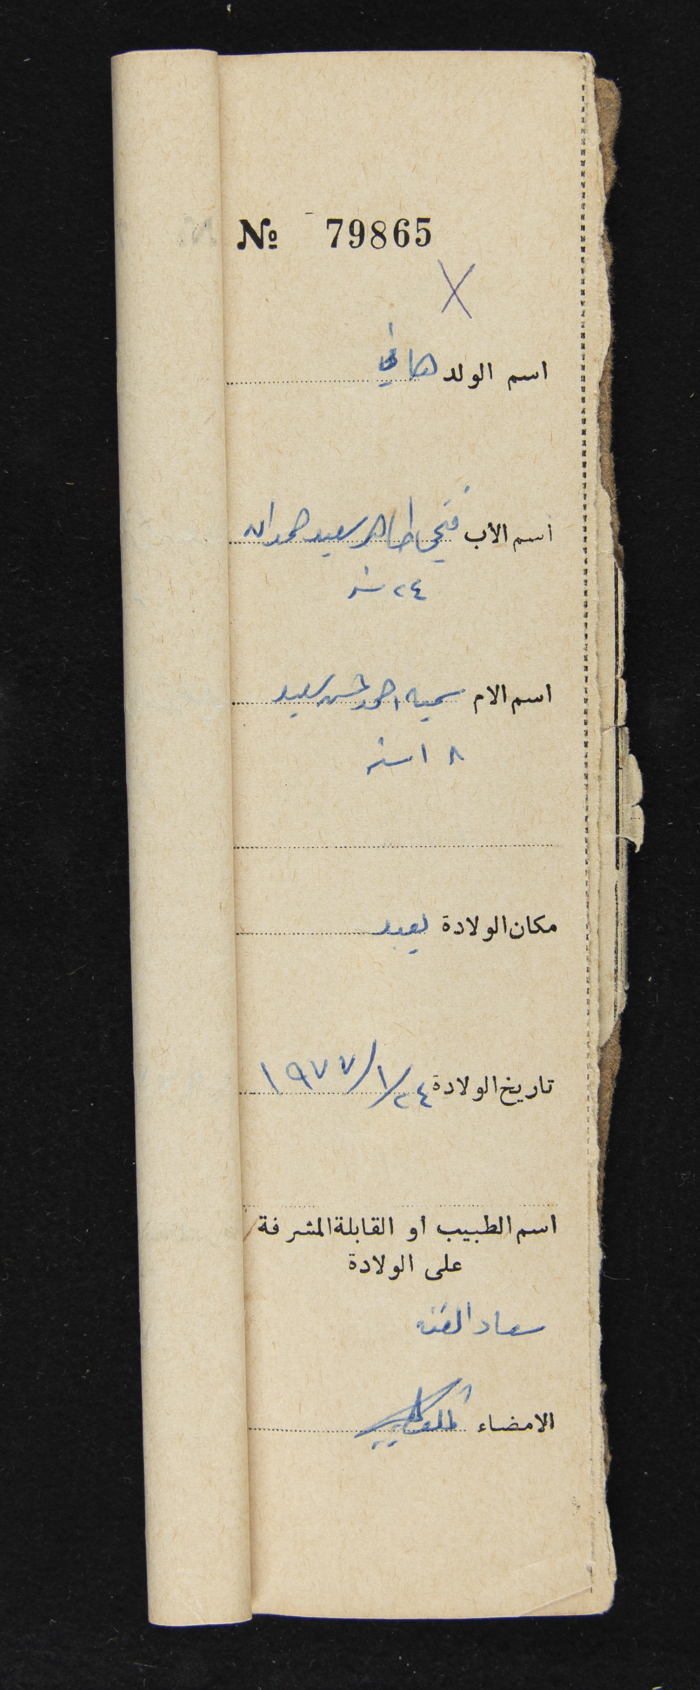 № 79865
X
اسم الولد هاني
اسم الاب فتحي طاهر سعيد حمدالله
٢٤ سنه
اسم الام سميه احمد حسن سعيد
١٨ سنه
مكان الولادة يعبد
تاريخ الولادة ٢٤/١/١٩٧٧
اسم الطبيب او القابلة المشرفة
على الولادة
سعاد
الامضاء